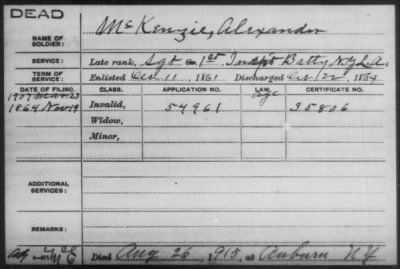 DEAD
NAME OF SOLDIER: McKenzie, Alexander
SERVICE: Late rank, Sgt 1st Indpt Batty N.Y.L.A.
TERM OF SERVICE: Enlisted Oct 11, 1861 Discharged Oct 22, 1864
DATE OF FILING. CLASS. APPLICATION NO. LAW. CERTIFICATE NO.
1907 Mar 23 Age
1864 Nov 19 Invalid, 54961 35806
Widow,
Minor,
ADDITIONAL SERVICES:
REMARKS:
Died Aug 26, 1915, at Auburn N.Y.